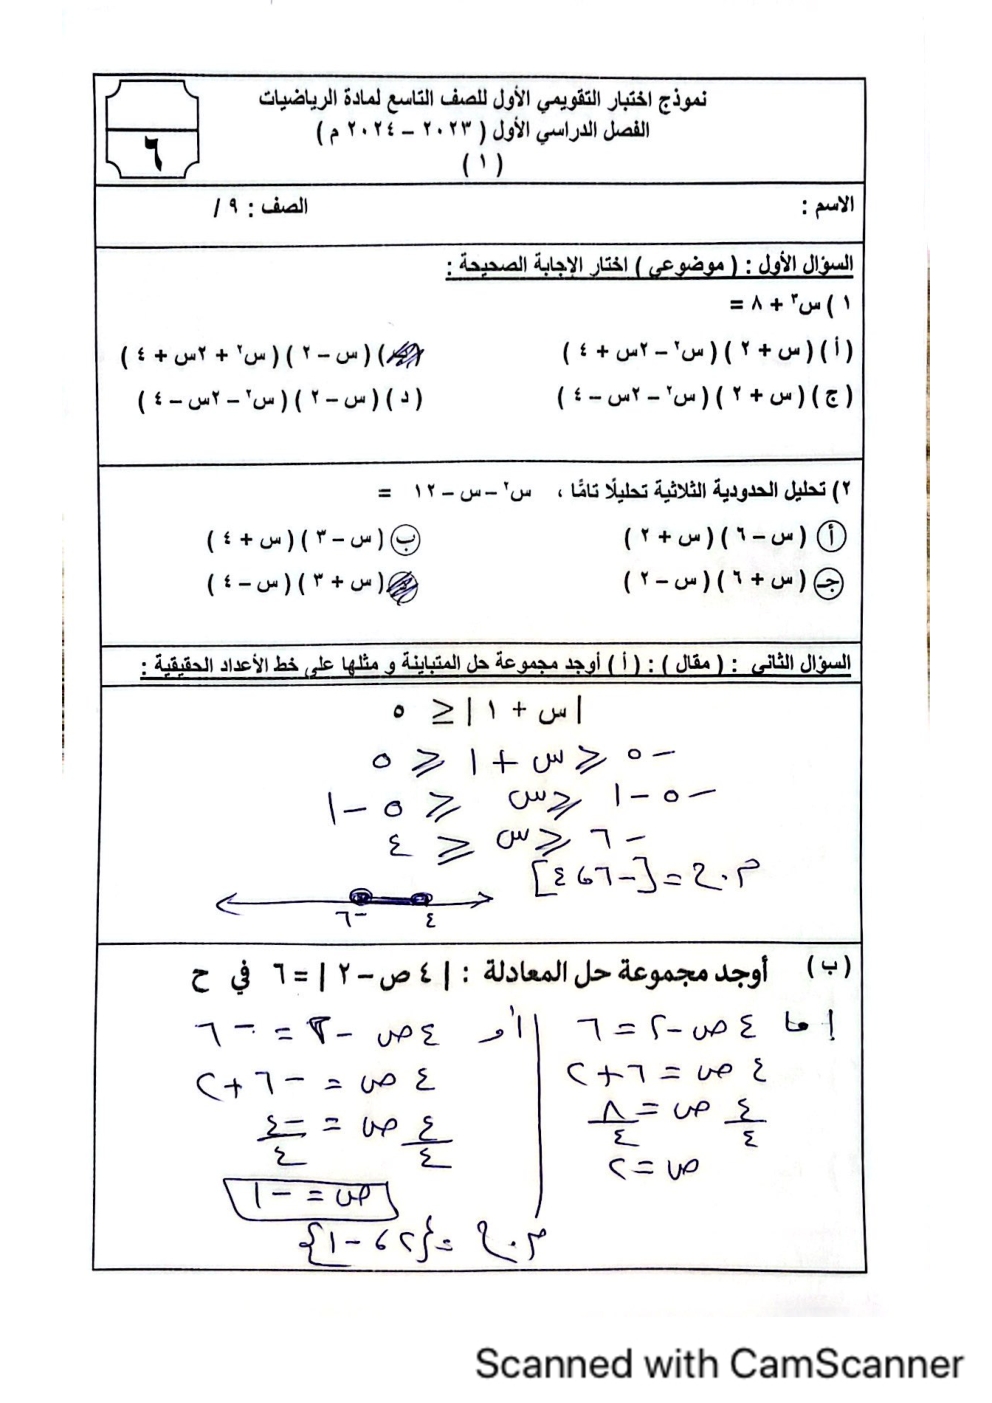 نموذج اختبار التقويمي الأول للصف التاسع لمادة الرياضيات
الفصل الدراسي الأول ( ٢٠٢٣ – ٢٠٢٤ م )
( ١ )
٦
الاسم : الصف : ٩ /
السؤال الأول : ( موضوعي ) اختار الإجابة الصحيحة :
١ ) س³ + ٨ =
( أ ) ( س + ٢ ) ( س² – ٢س + ٤ ) ) ( س – ٢ ) ( س² + ٢س + ٤ )
( ج ) ( س + ٢ ) ( س² – ٢س – ٤ ) ( د ) ( س – ٢ ) ( س² – ٢س – ٤ )
٢) تحليل الحدودية الثلاثية تحليلًا تامًا ، س² – س – ١٢ =
أ ( س – ٦ ) ( س + ٢ ) ب ( س – ٣ ) ( س + ٤ )
جـ ( س + ٦ ) ( س – ٢ ) ( س + ٣ ) ( س – ٤ )
السؤال الثاني : ( مقال ) : ( أ ) أوجد مجموعة حل المتباينة و مثلها على خط الأعداد الحقيقية :
| س + ١ | ≤ ٥
-٥ ≤ س + ١ ≤ ٥
-٥ -١ ≤ س ≤ ٥ -١
-٦ ≤ س ≤ ٤
م.ح = [-٦ و ٤]
-٦ ٤
( ب ) أوجد مجموعة حل المعادلة : | ٤ ص – ٢ | = ٦ في ح
إما ٤ ص -٢ = ٦ أو ٤ ص -٢ = -٦
٤ ص = ٦ + ٢ ٤ ص = -٦ + ٢
٤/٤ ص = ٨/٤ ٤/٤ ص = -٤/٤
ص = ٢ ص = -١
م.ح = {٢ و -١}
Scanned with CamScanner